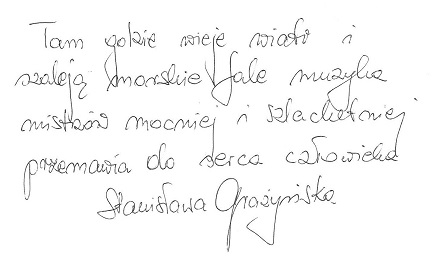 Tam gdzie wieje wiatr i
szaleją morskie fale muzyka
mistrzów mocniej i szlachetniej
przemawia do serca człowieka
Stanisława Grażyńska